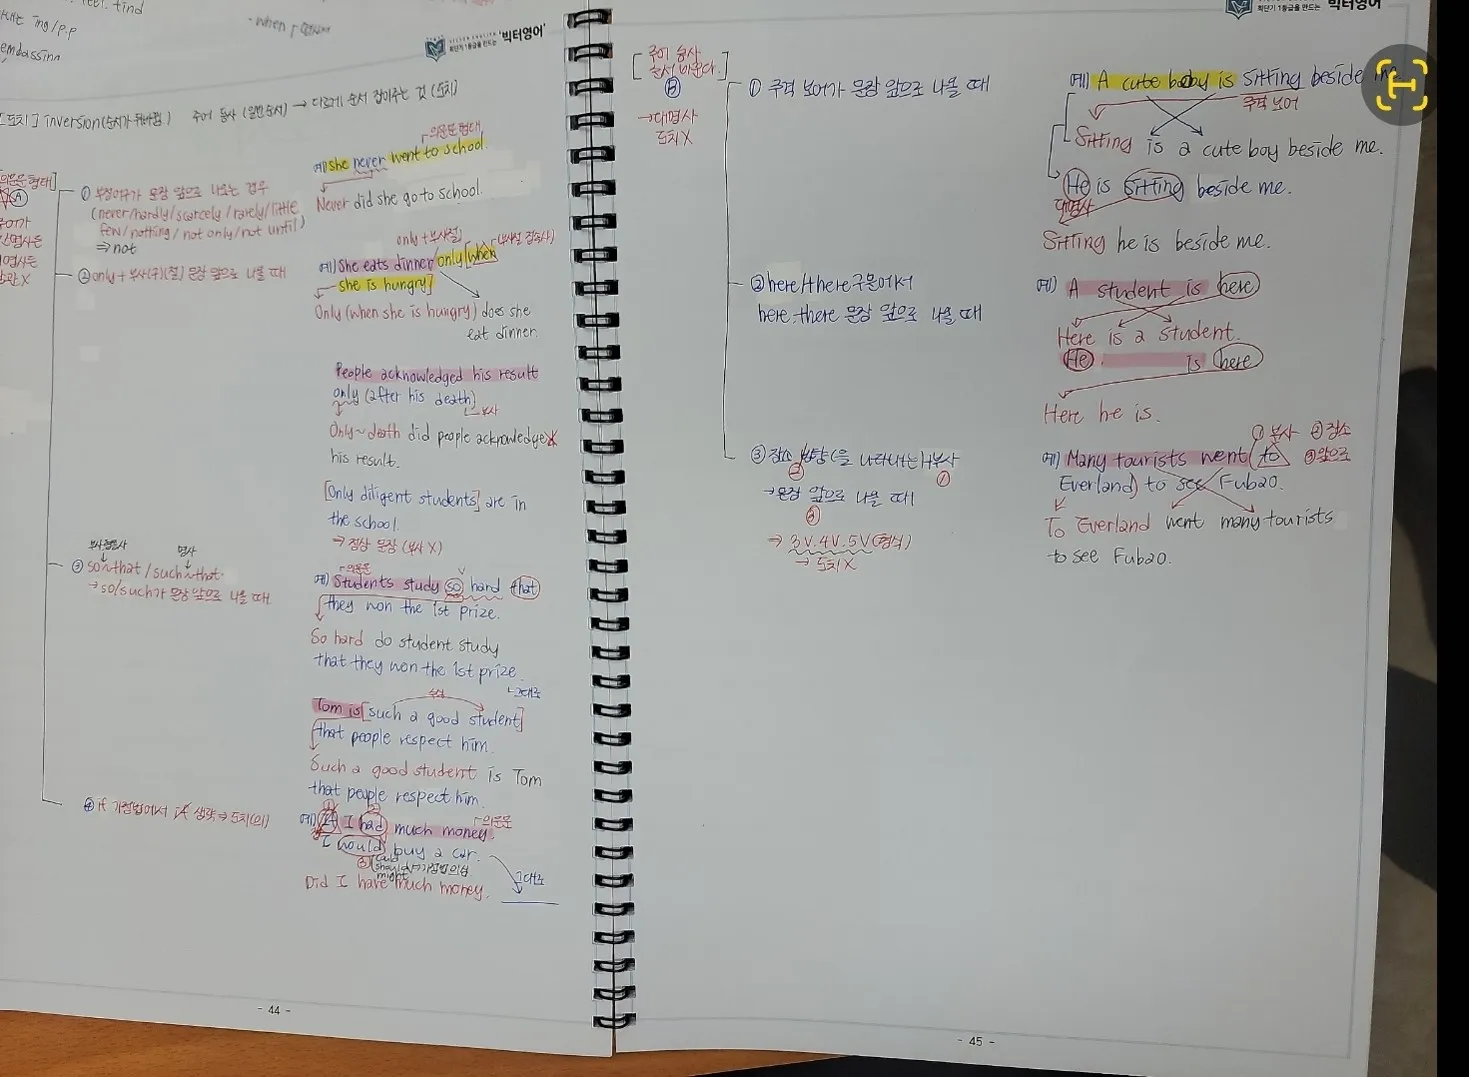 ing/p.p
- when
'빅터영어'
[도치] inversion(순서가 뒤바뀜) 주어 동사 (일반순서) → 다르게 순서 잡아주는 것 (도치)
의문문 형태]
Ⓐ
① 부정어구가 문장 앞으로 나오는 경우
(never/hardly/scarcely/rarely/little
few/nothing/not only/not until)
⇒ not
② only + 부사(구)(절) 문장 앞으로 나올 때
부사 형용사 명사
③ so~that / such~that
→ so/such가 문장 앞으로 나올 때!
④ if 가정법에서 if 생략 ⇒ 도치(의)
의문문 형태
예) she never went to school.
Never did she go to school.
only + 부사절
(부사절 접속사)
예) She eats dinner only [when
she is hungry]
Only (when she is hungry) does she
eat dinner.
People acknowledged his result
only (after his death)
부사
Only ~ death did people acknowledge
his result.
[Only diligent students] are in
the school.
→ 정상 문장 (부사 X)
의문문
예) Students study so hard that
they won the 1st prize.
So hard do student study
that they won the 1st prize.
그대로
수식
Tom is [such a good student]
that people respect him.
Such a good student is Tom
that people respect him.
① ②
예) If I had much money. 의문문
I would buy a car.
③ could
should
might
그대로
Did I have much money.
- 44 -
'빅터영어'
[주어 동사
순서 바꾼다.]
Ⓑ
→ 대명사
도치 X
① 주격 보어가 문장 앞으로 나올 때
② here/there 구문에서
here, there 문장 앞으로 나올 때
③ 장소, 방향(을 나타내는)+부사
② ①
→ 문장 앞으로 나올 때!
③
→ 3V. 4V. 5V(형식)
→ 도치 X
예) A cute baby is sitting beside me.
주격 보어
Sitting is a cute boy beside me.
He is sitting beside me.
대명사
Sitting he is beside me.
예) A student is here
Here is a student.
He is here
Here he is.
① 부사 ② 장소
예) Many tourists went (to ③ 앞으로
Everland) to see Fubao.
To Everland went many tourists
to see Fubao.
- 45 -